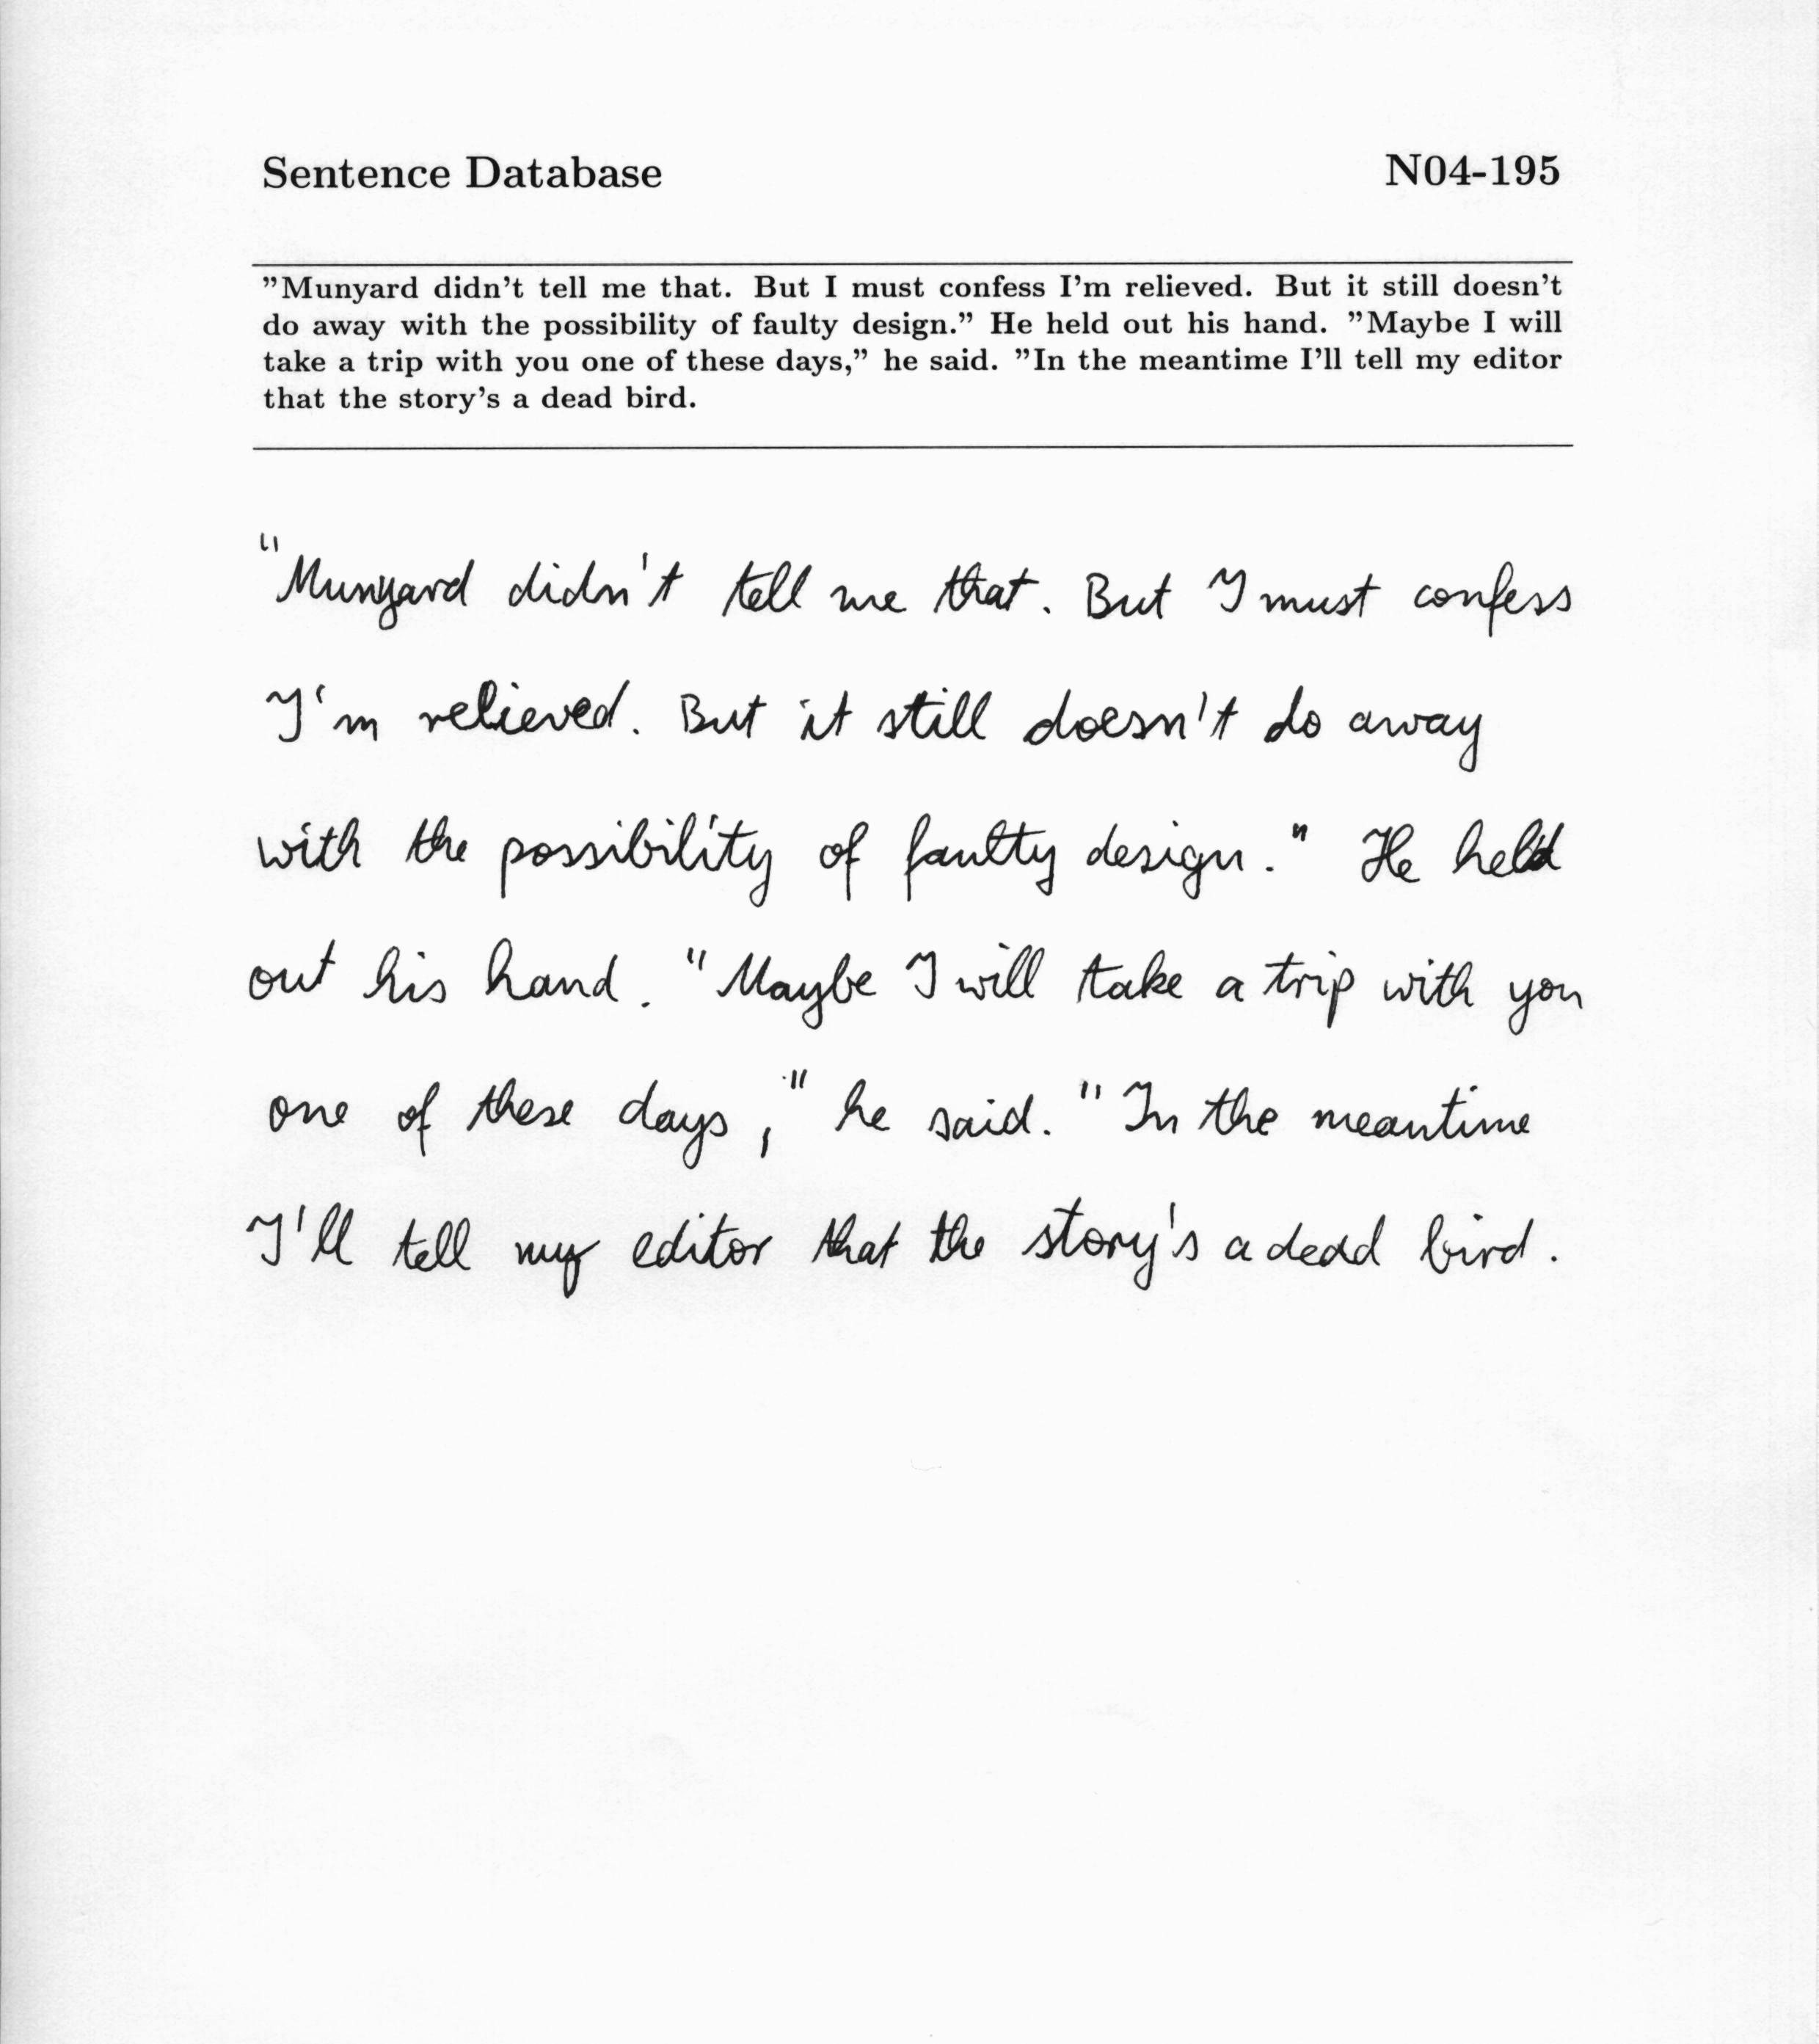 Sentence Database N04-195
”Munyard didn’t tell me that. But I must confess I’m relieved. But it still doesn’t
do away with the possibility of faulty design.” He held out his hand. ”Maybe I will
take a trip with you one of these days,” he said. ”In the meantime I’ll tell my editor
that the story’s a dead bird.
"Munyard didn't tell me that. But I must confess
I'm relieved. But it still doesn't do away
with the possibility of faulty design." He held
out his hand. "Maybe I will take a trip with you
one of these days," he said. "In the meantime
I'll tell my editor that the story's a dead bird.